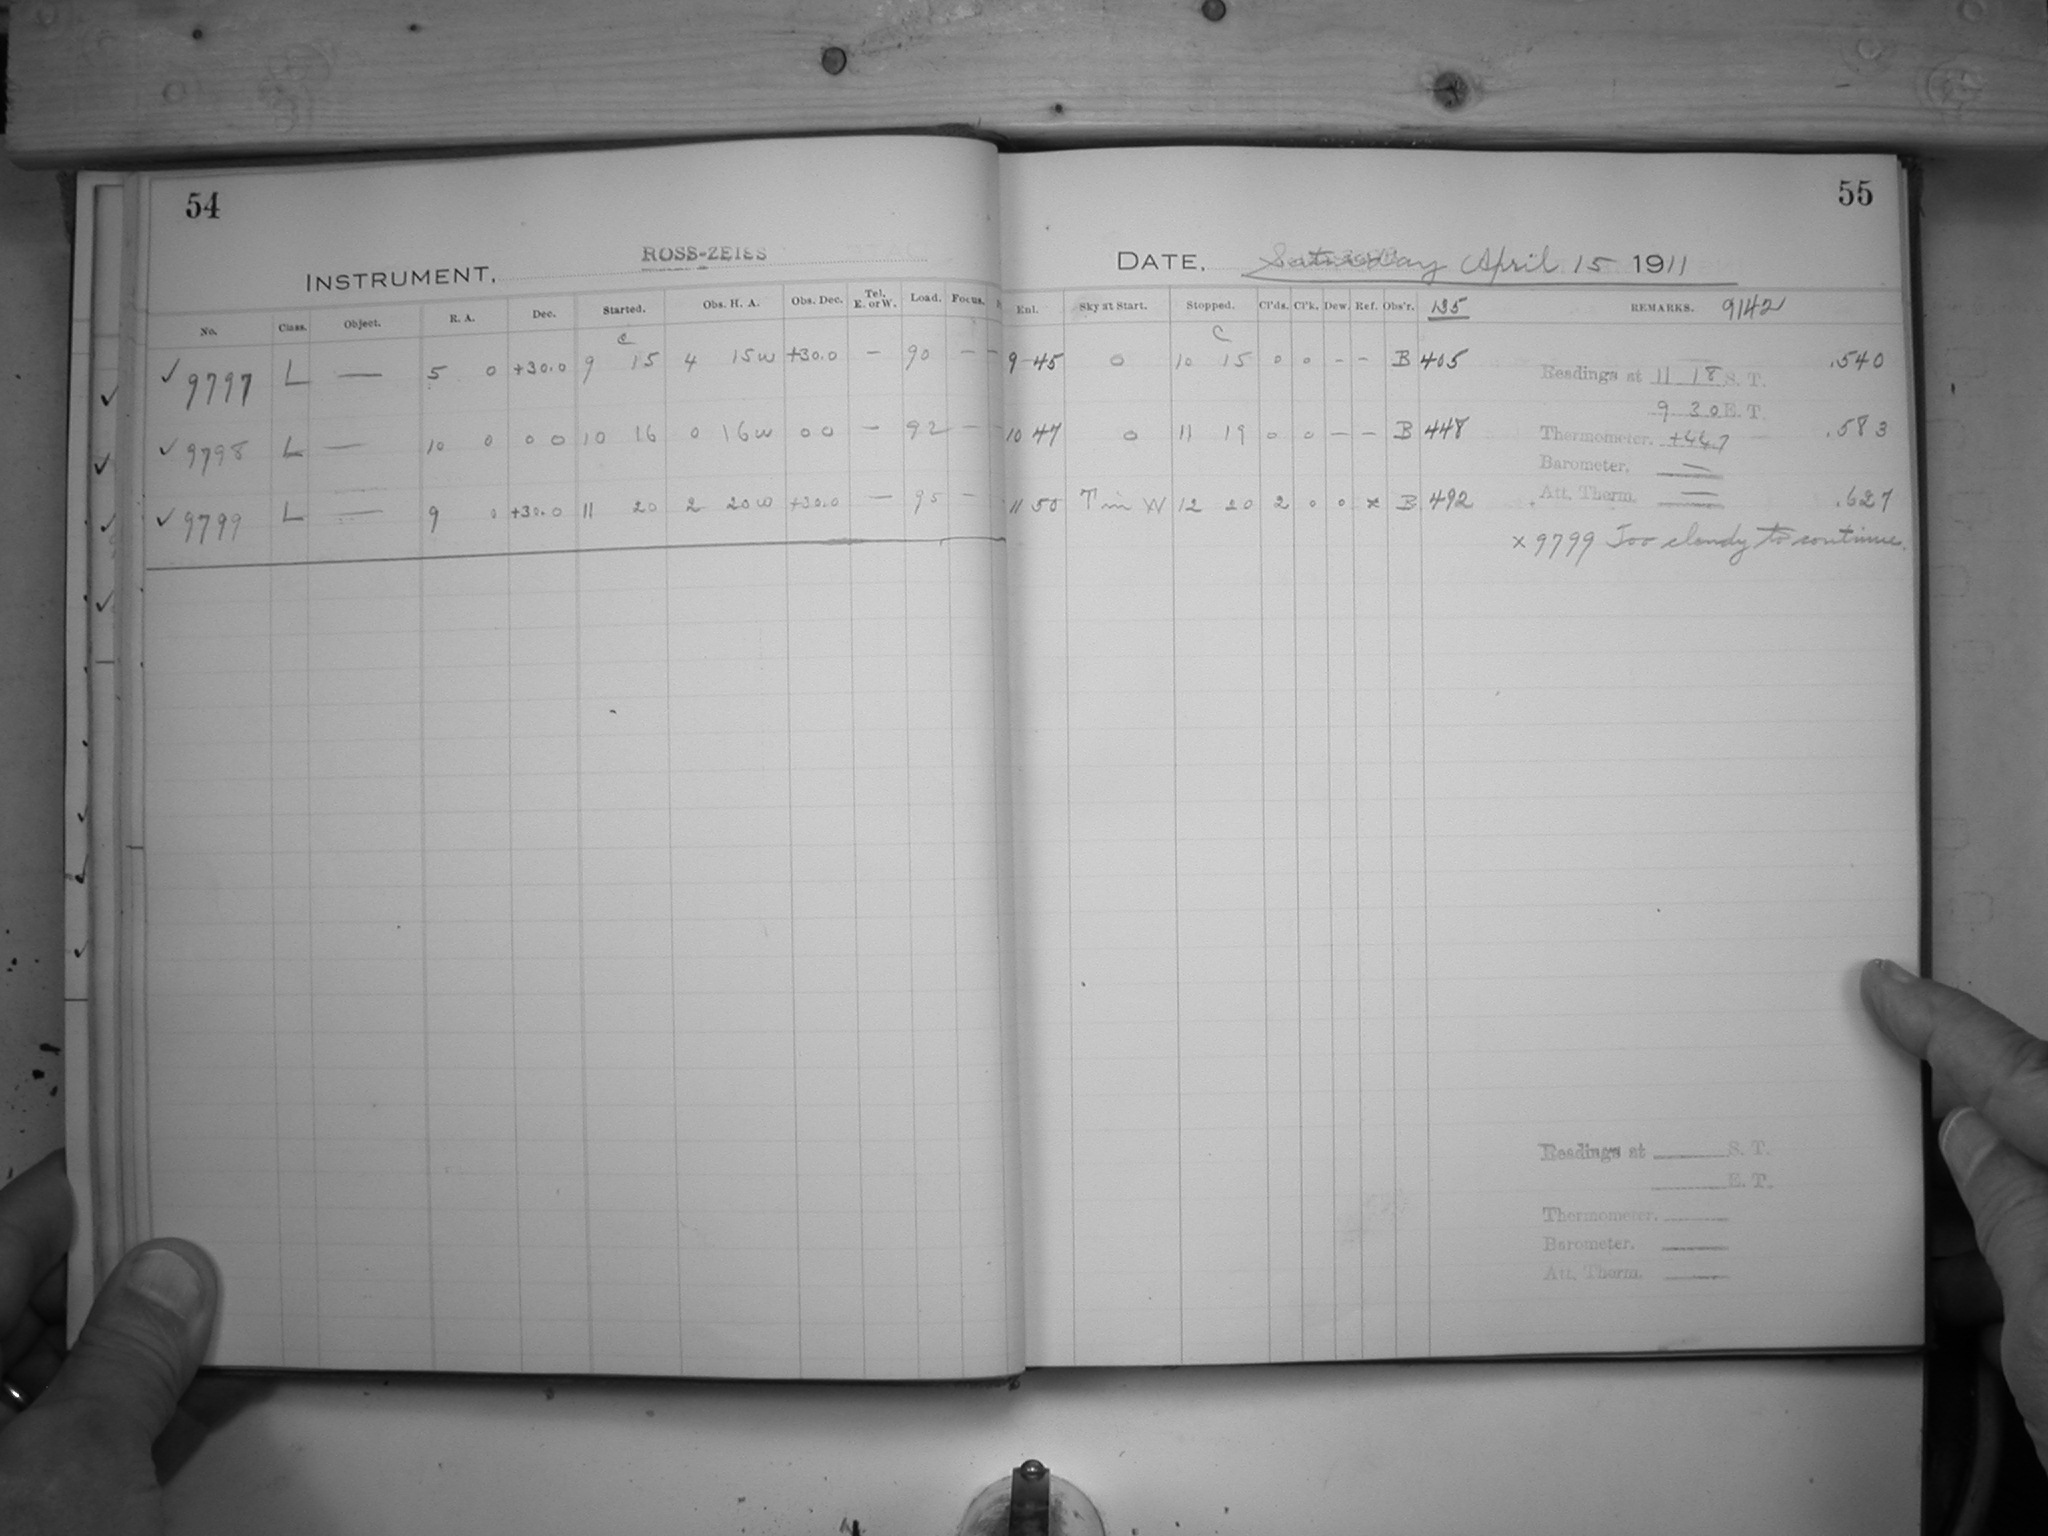 54
ROSS-ZEISS
INSTRUMENT.
No. Class. Object. R. A. Dec. Started. Obs. H. A. Obs. Dec. Tel. E. or W. Load. Focus.
c
✓ 9797 L — 5 0 +30.0 9 15 4 15w +30.0 — 90 — —
✓ 9798 L — 10 0 0 0 10 16 0 16w 0 0 — 92 — —
✓ 9799 L — 9 0 +30.0 11 20 2 20w +30.0 — 95 —
55
DATE, Saturday April 15 1911
Enl. Sky at Start. Stopped. Cl'ds. Cl'k. Dew. Ref. Obs'r. 135 REMARKS. 9142
C
9 45 0 10 15 0 0 — — B 405 .540
Readings at 11 18 S. T.
9 30 E. T.
10 47 0 11 19 0 0 — — B 448 .583
Thermometer. +44.7
Barometer. —
11 50 T in W 12 20 2 0 0 x B 492 .627
Att. Therm. —
x 9799 Too cloudy to continue.
Readings at S. T.
E. T.
Thermometer.
Barometer.
Att. Therm.